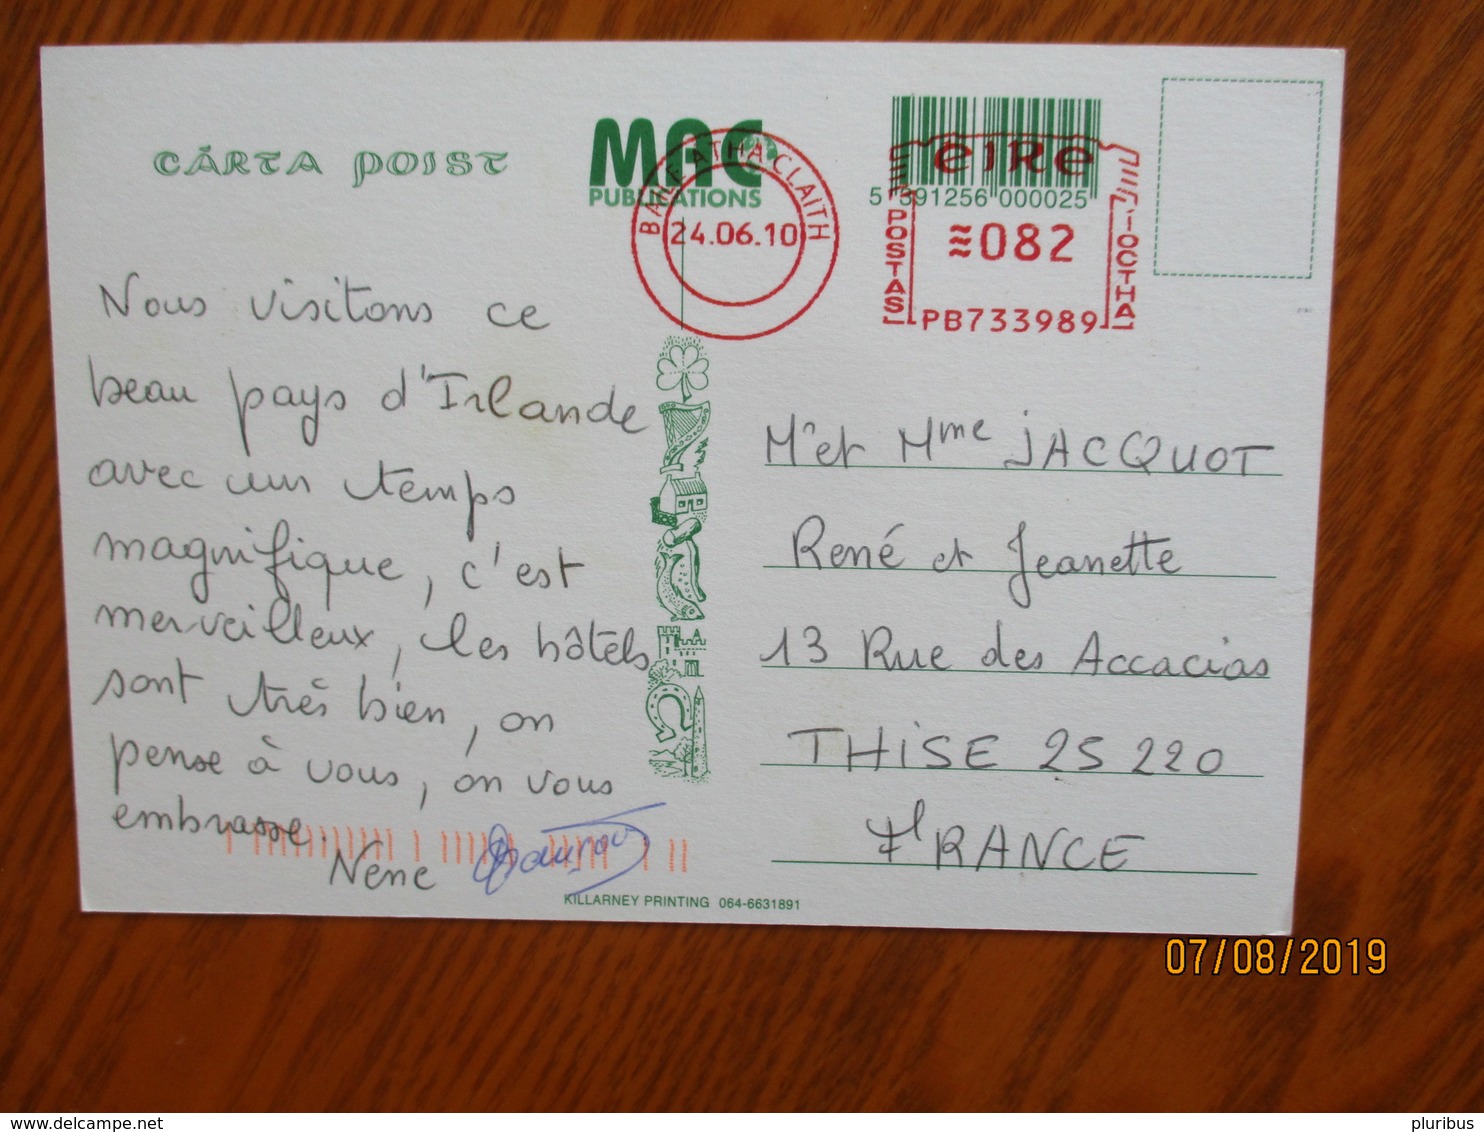 CÁRTA POIST
MAC
PUBLICATIONS
BAILE ATHA CLAITH
24.06.10
5 391256 000025
éire
POSTAS
≈082
ÍOCTHA
PB733989
Nous visitons ce
beau pays d'Irlande
avec un temps
magnifique, c'est
merveilleux, les hôtels
sont très bien, on
pense à vous, on vous
embrasse.
Nene
Mr et Mme JACQUOT
René et Jeanette
13 Rue des Accacias
THISE 25 220
FRANCE
KILLARNEY PRINTING 064-6631891
07/08/2019
www.delcampe.net
pluribus